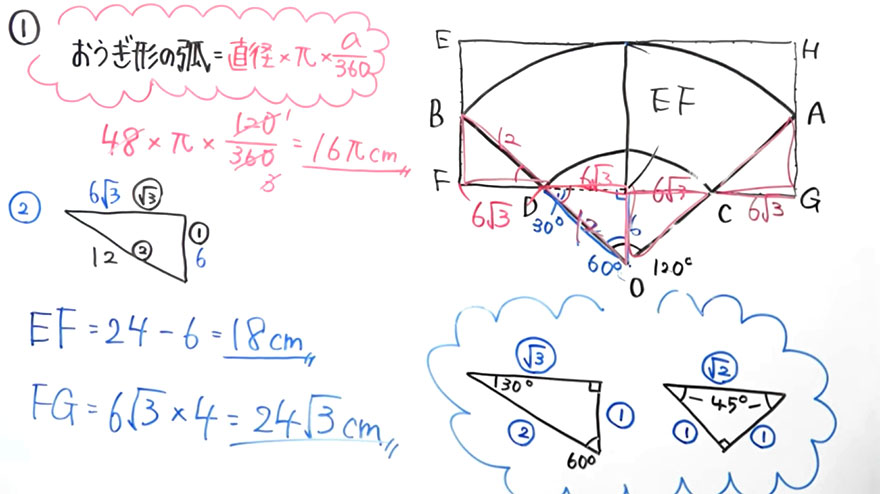 ①
おうぎ形の弧=直径×π×a/360
48×π×120/360=16πcm
1
3
②
6√3 √3
12 2 1 6
EF=24-6=18cm
FG=6√3×4=24√3cm
E H
EF
B A
12
F 6√3 6√3 G
6√3 D C 6√3
30° 12 6
60° 120°
O
√3
30°
2 1
60°
√2
45°
1 1